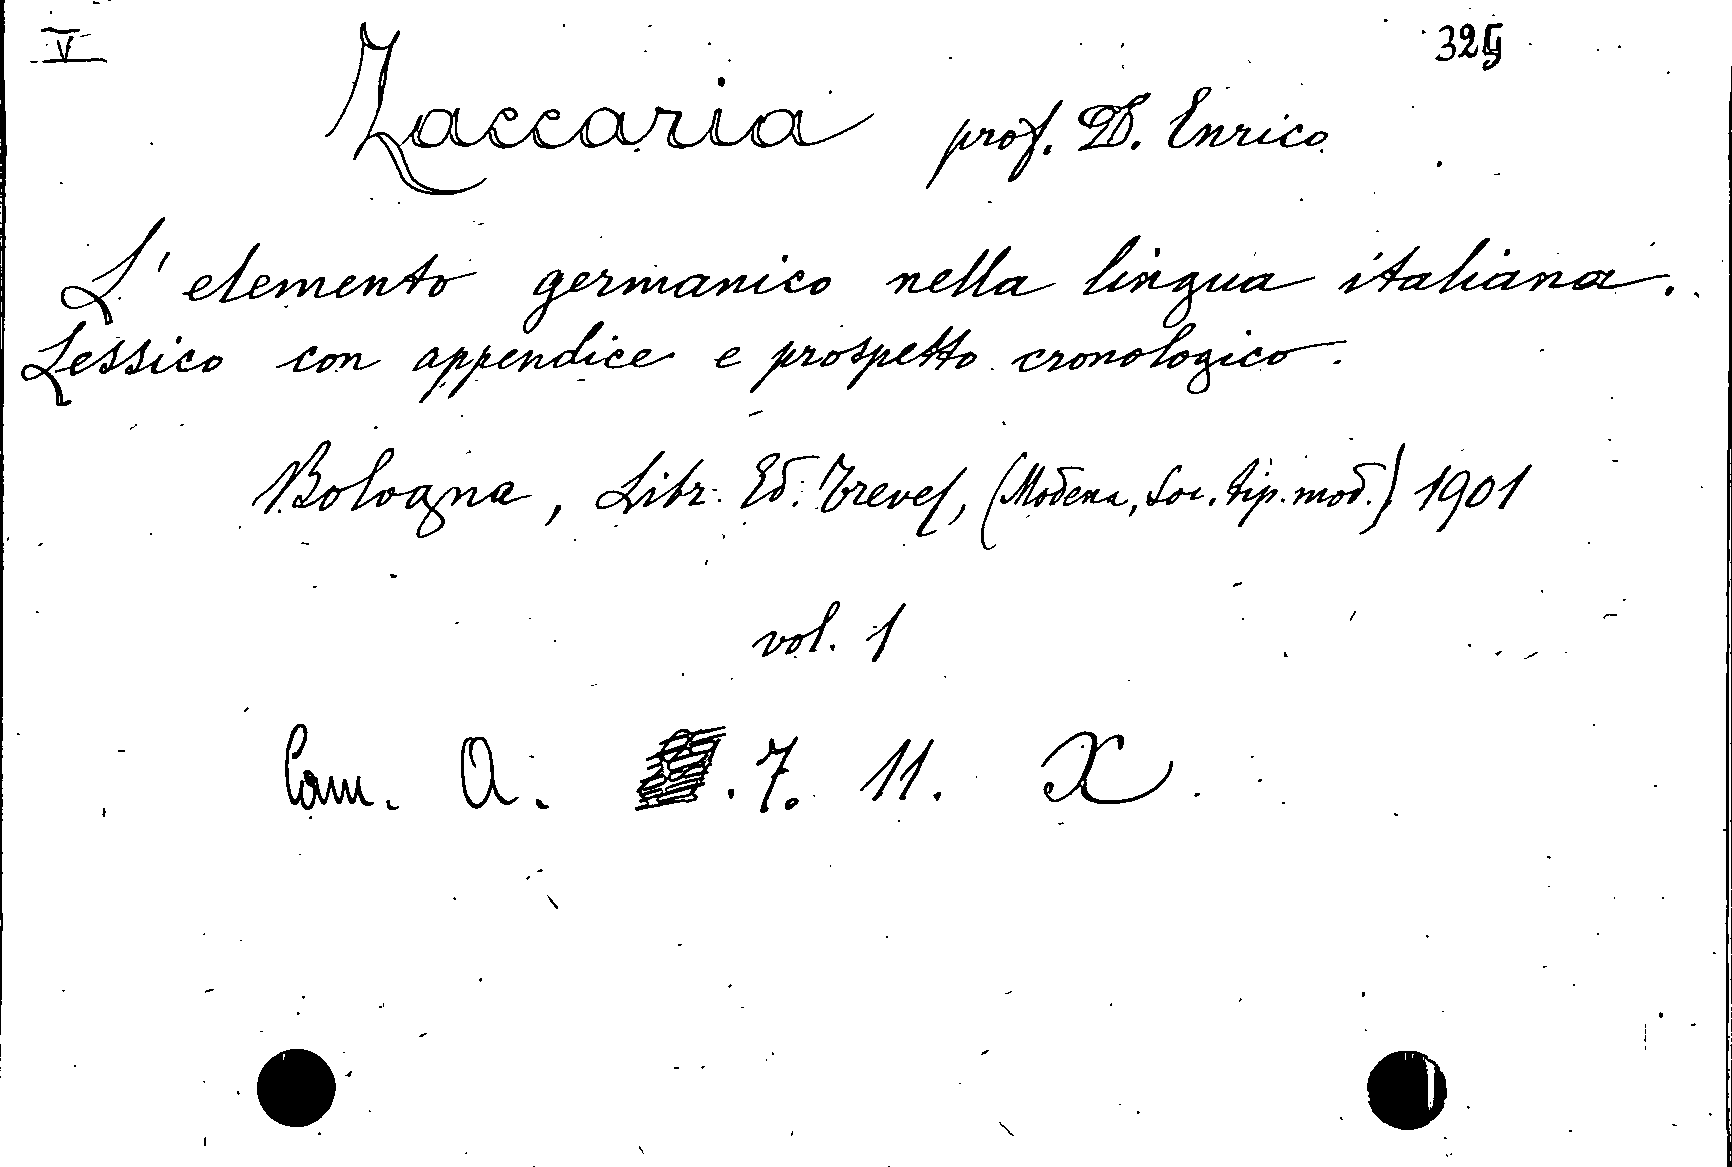 V
Zaccaria prof. D. Enrico
L'elemento germanico nella lingua italiana.
Lessico con appendice e prospetto cronologico.
Bologna, Libr. Ed. Treves, (Modena, Soc. tip. mod.) 1901
vol. 1
Cam. A. . 7. 11. X